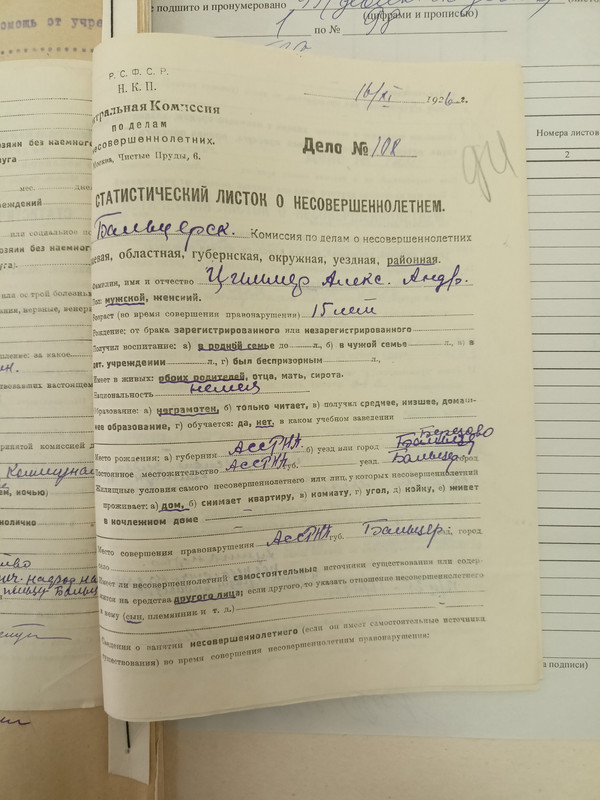 омощь от учре
е подшито и пронумеровано
(цифрами и прописью)
по №
Р. С. Ф. С. Р.
Н. К. П.
тральная Комиссия
по делам
есовершеннолетних.
Москва, Чистые Пруды, 6.
16/XI 1926 г.
Дело № 108
Номера листов
2
СТАТИСТИЧЕСКИЙ ЛИСТОК О НЕСОВЕРШЕННОЛЕТНЕМ.
Бальцерск. Комиссия по делам о несовершеннолетних
евая, областная, губернская, окружная, уездная, районная.
Фамилия, имя и отчество Циммер Алекс. Андр.
Пол: мужской, женский.
Возраст (во время совершения правонарушения) 15 лет
Рождение: от брака зарегистрированного или незарегистрированного
Получил воспитание: а) в родной семье до л., б) в чужой семье л., в) в
дет. учреждении л., г) был беспризорным л.
Имеет в живых: обоих родителей, отца, мать, сирота.
Национальность немец
Образование: а) неграмотен, б) только читает, в) получил среднее, низшее, домаш-
нее образование, г) обучается: да, нет, в каком учебном заведении
Место рождения: а) губерния АССРНП. б) уезд или город
Постоянное местожительство АССРНП губ. уезд. Бальцер город
Жилищные условия самого несовершеннолетнего или лиц, у которых несовершеннолетний
проживает: а) дом, б) снимает квартиру, в) комнату, г) угол, д) койку, е) живет
в ночлежном доме
Место совершения правонарушения АССРНП губ. Бальцер. город
Имеет ли несовершеннолетний самостоятельные источники существования или содер-
жится на средства другого лица; если другого, то указать отношение несовершеннолетнего
к нему (сын, племянник и т. д.)
Сведения о занятии несовершеннолетнего (если он имеет самостоятельные источники
существования) во время совершения несовершеннолетним правонарушения:
озяин без наемного
руга
мес.
реждений
или социальное по
озяин без наемного
уга).
или острой болезнью
пление: за какое
ствовавших настоящем
ринятой комиссией д
ем, ночью)
а подписи)